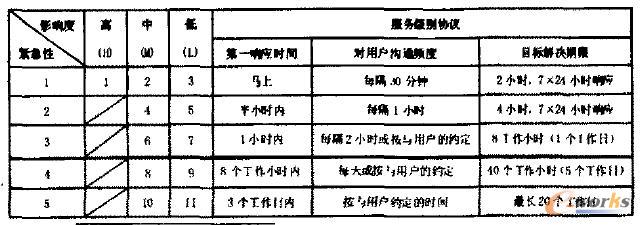 影响度 高 中 低 服务级别协议
紧急性 (H) (M) (L) 第一响应时间 对用户沟通频度 目标解决期限
1 1 2 3 马上 每隔30分钟 2小时,7×24小时响应
2 4 5 半小时内 每隔1小时 4小时,7×24小时响应
3 6 7 1小时内 每隔2小时或按与用户的约定 8工作小时(1个工作日)
4 8 9 8个工作小时内 每天或按与用户的约定 40个工作小时(5个工作日)
5 10 11 3个工作日内 按与用户约定的时间 最长20个工作日